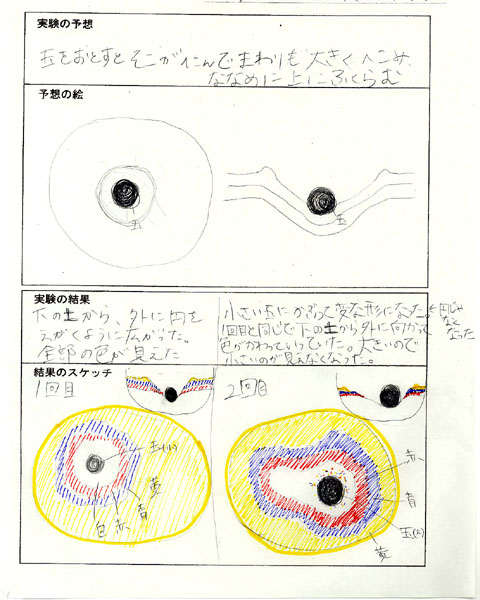 実験の予想
玉をおとすとそこがへこんでまわりも大きくへこみ、
ななめに上にふくらむ
予想の絵
玉
玉
実験の結果
下の土から、外に円を
えがくように広がった。
全部の色が見えた
小さい玉にかぎって変な形になった。
←円じゃ
なく
なった
1回目と同じで下の土から外に向かって
色がかわっていっていた。大きいので
小さいのが見えなくなった。
結果のスケッチ
1回目
玉(小)
黄
青
赤
白
2回目
赤
青
玉(大)
黄